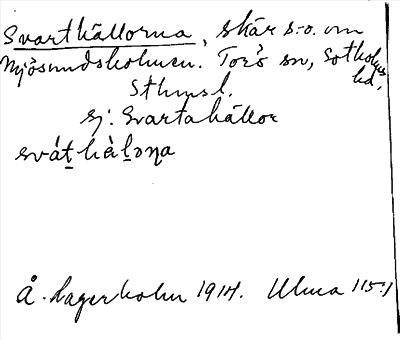 Svarthällorna, skär s.o. om
Mjösundsholmen. Torö sn, Sotholms hd,
Sthmsl.
ej: Svartahällor
svát̲hàl̲ɔna
Å. Lagerholm 1914. Ulma 115:1